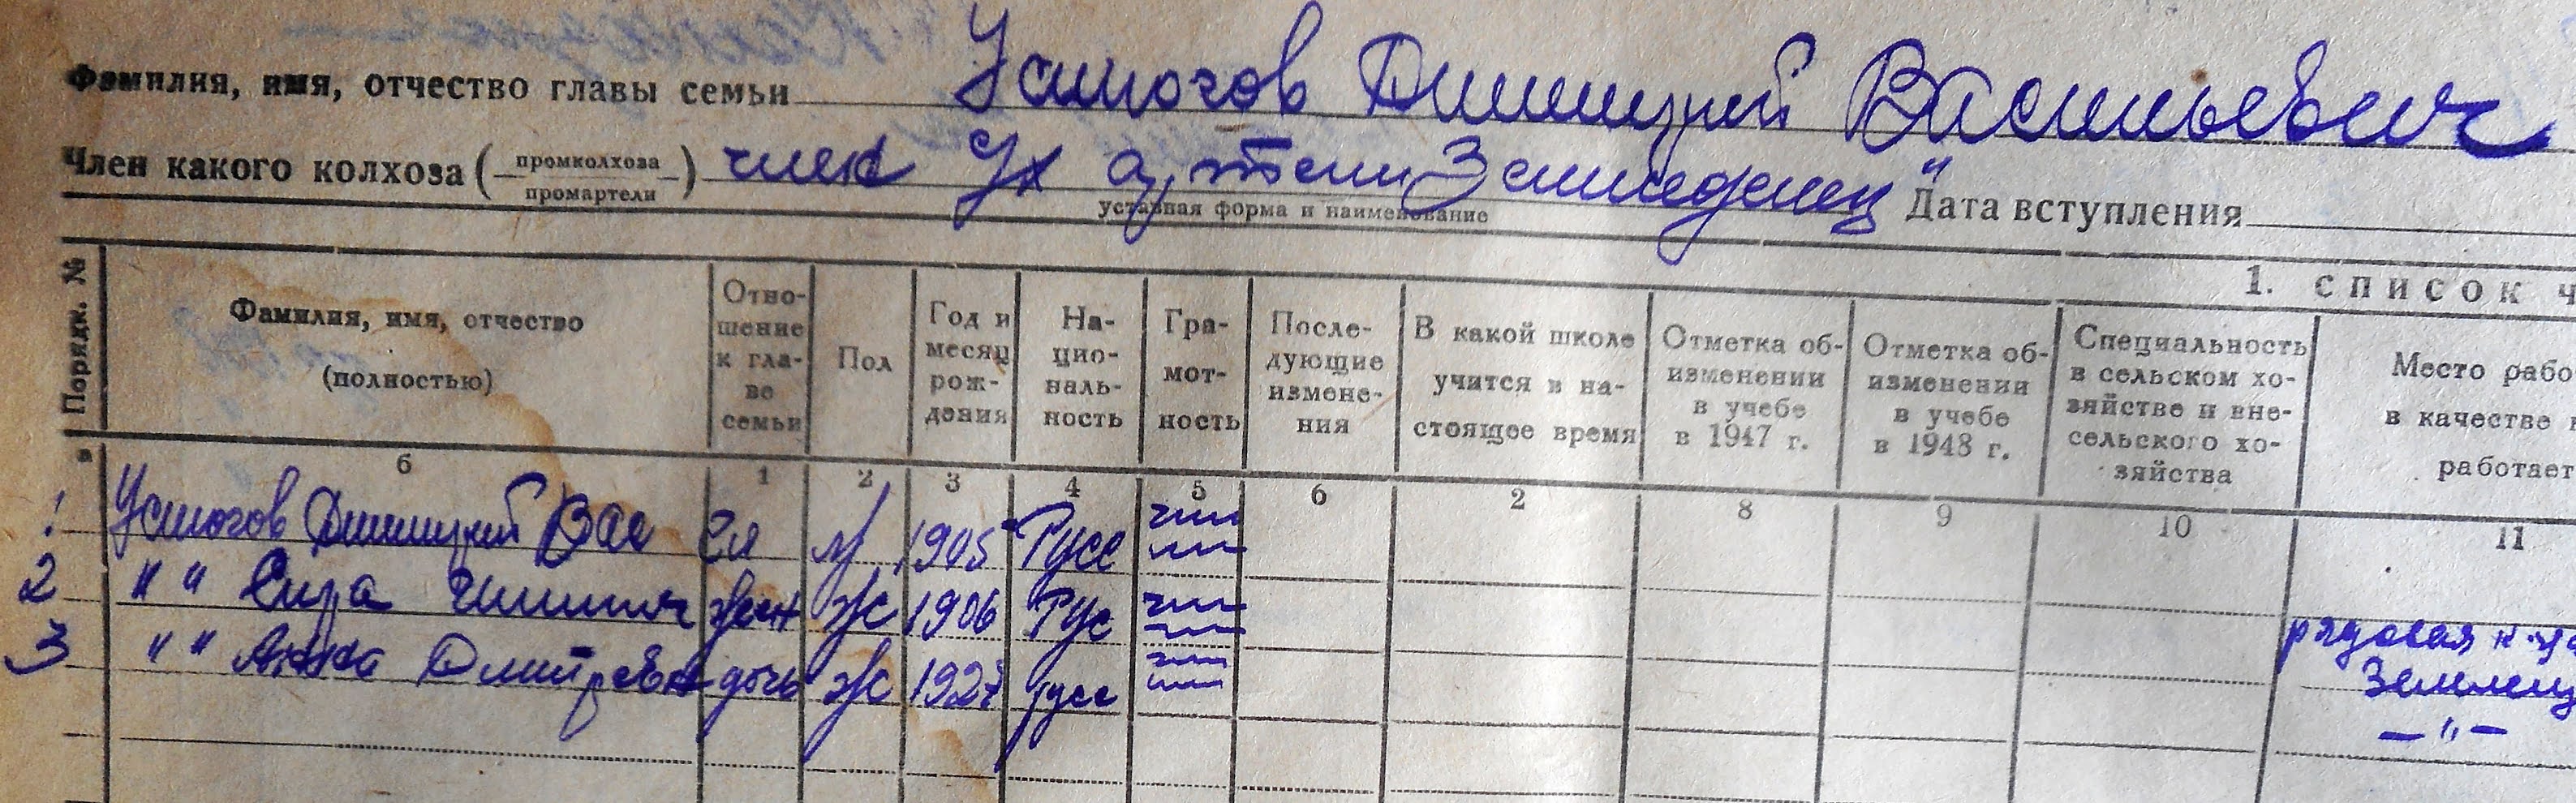 Фамилия, имя, отчество главы семьи Устюгов Дмитрий Васильевич
Член какого колхоза (промколхоза промартели) член с/х артели Земледелец"
уставная форма и наименование
Дата вступления
1. СПИСОК Ч
Порядк. №
Фамилия, имя, отчество (полностью)
Отно-
шение
к гла-
ве
семьи
Пол
Год и
месяц
рож-
дения
На-
цио-
наль-
ность
Гра-
мот-
ность
После-
дующие
измене-
ния
В какой школе
учится в на-
стоящее время
Отметка об-
изменении
в учебе
в 1947 г.
Отметка об-
изменении
в учебе
в 1948 г.
Специальность
в сельском хо-
зяйстве и вне-
сельского хо-
зяйства
Место рабо
в качестве к
работает
а б 1 2 3 4 5 6 2 8 9 10 11
1 Устюгов Дмитрий Вас гл м 1905 Русс
2 " " жен ж 1906 Рус рядовая
3 " " Анна Дмитревна дочь ж 1927 русс
— " —